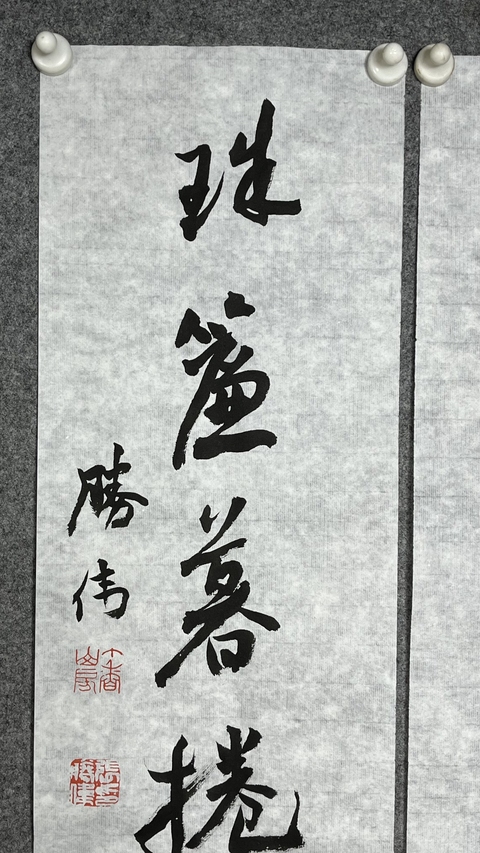 珠簾暮捲
勝伟